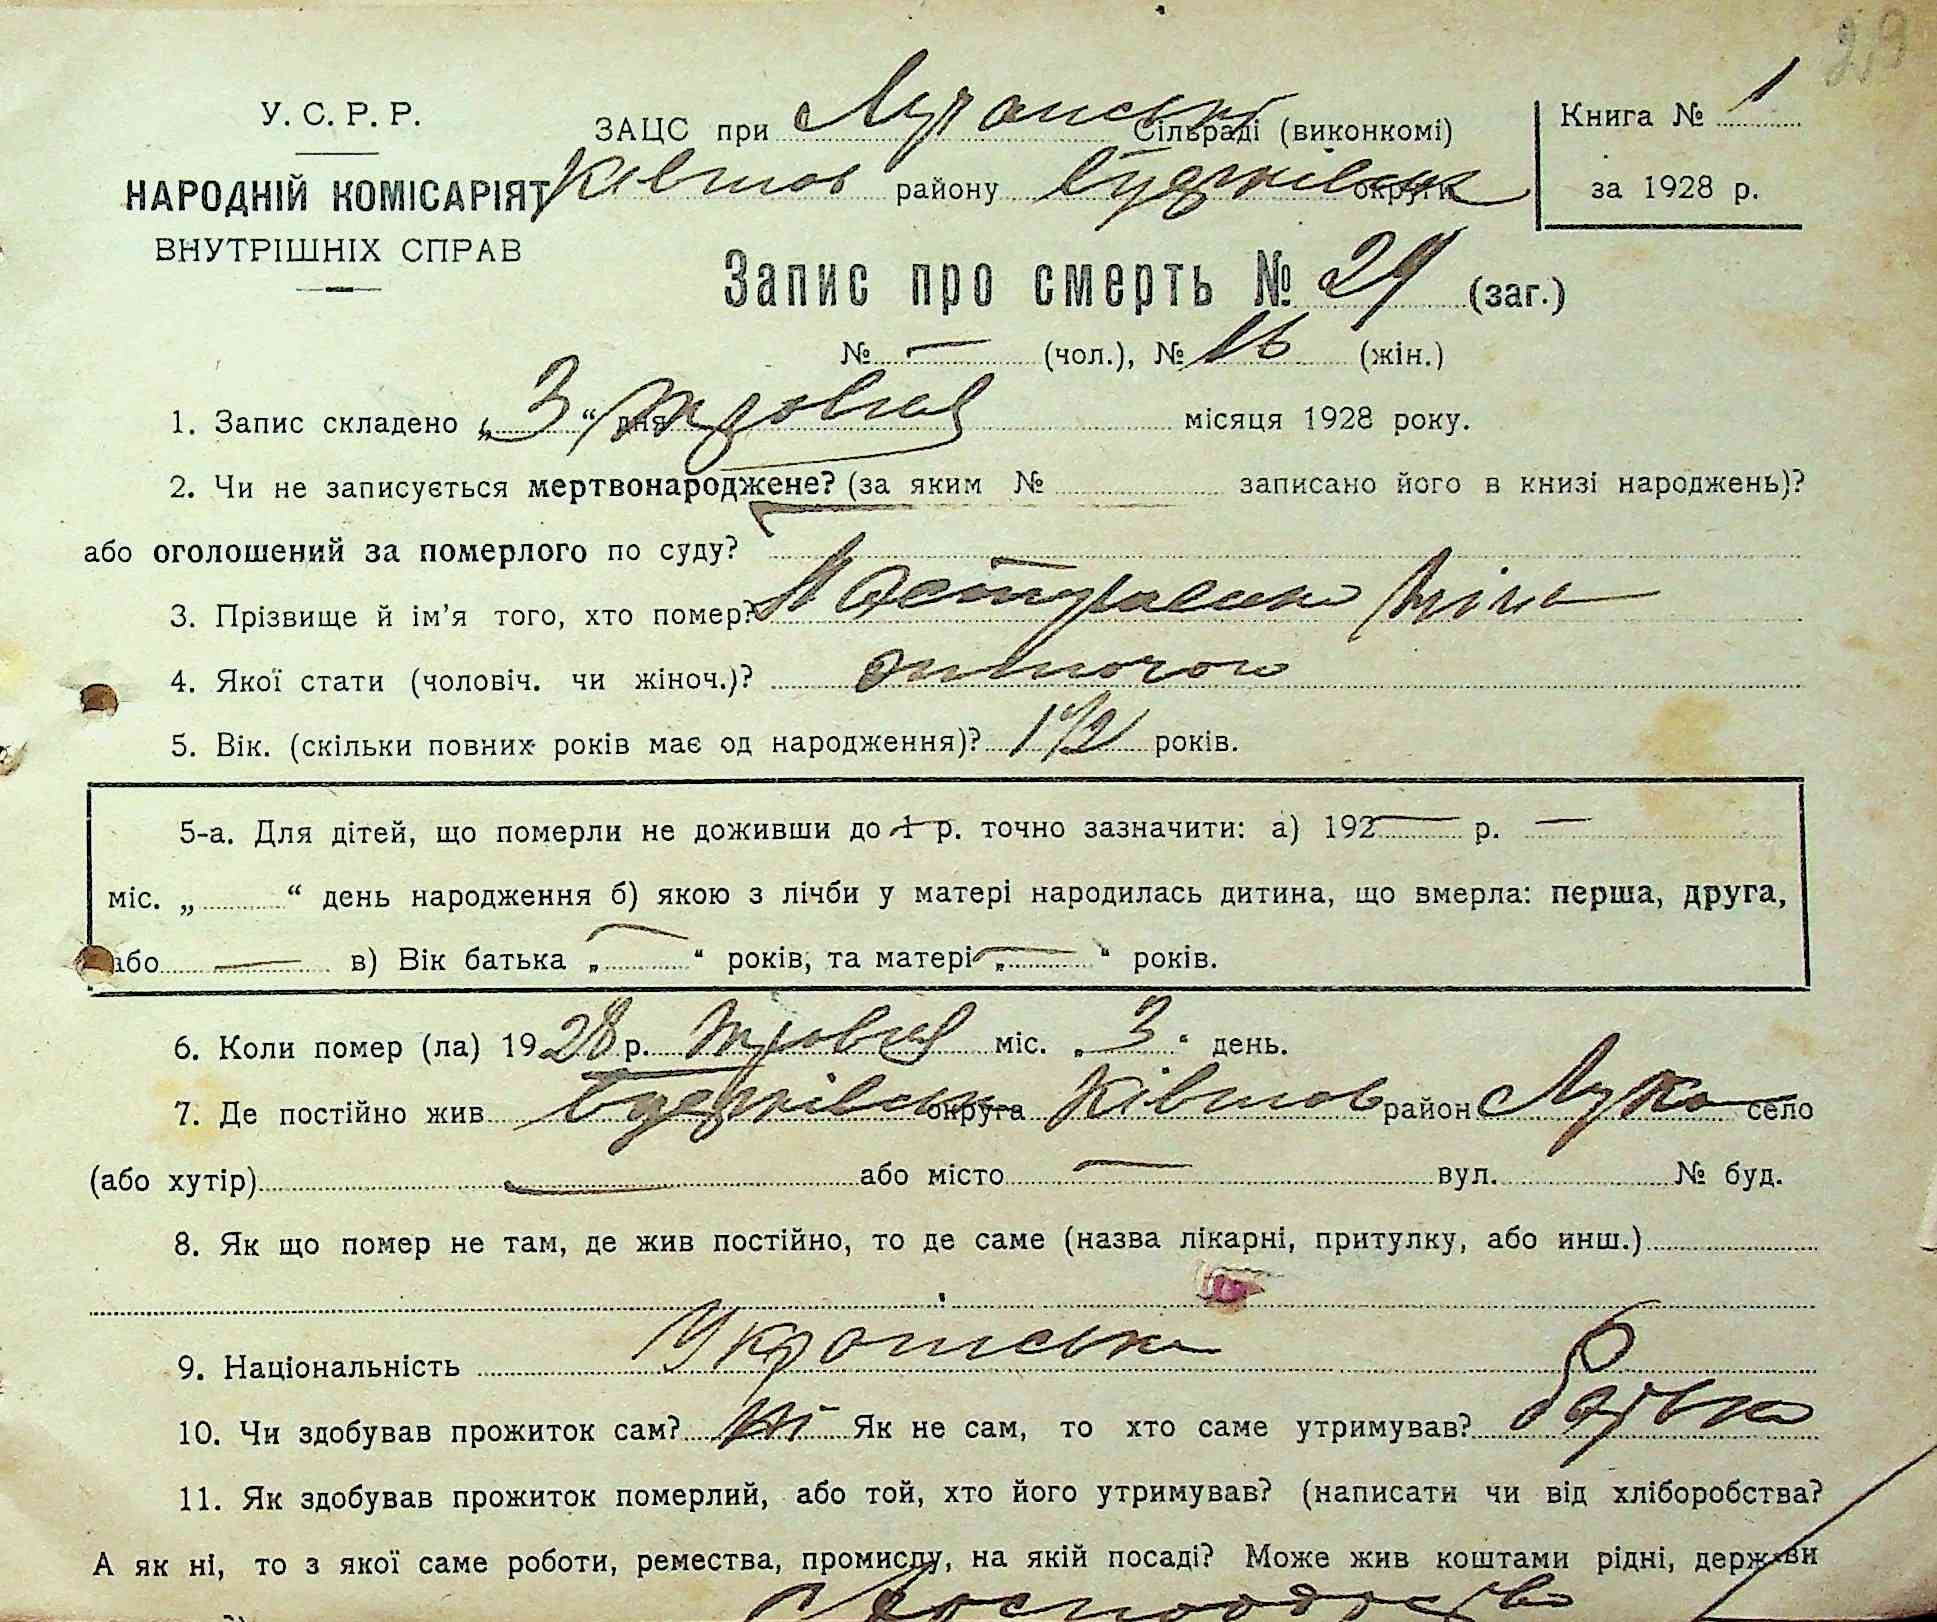 29
У. С. Р. Р.
НАРОДНІЙ КОМІСАРІЯТ
ВНУТРІШНІХ СПРАВ
ЗАЦС при Сільраді (виконкомі)
району округи
Книга № 1
за 1928 р.
Запис про смерть № 29 (заг.)
№ — (чол.), № 16 (жін.)
1. Запис складено „3“ дня Травня місяця 1928 року.
2. Чи не записується мертвонароджене? (за яким № записано його в книзі народжень)?
або оголошений за померлого по суду?
3. Прізвище й ім'я того, хто помер?
4. Якої стати (чоловіч. чи жіноч.)? жіночою
5. Вік. (скільки повних років має од народження)? 1 1/2 років.
5-а. Для дітей, що померли не доживши до 1 р. точно зазначити: а) 192— р. —
міс. „ “ день народження б) якою з лічби у матері народилась дитина, що вмерла: перша, друга,
або — в) Вік батька „—“ років, та матері „—“ років.
6. Коли помер (ла) 1928 р. Травня міс. „3“ день.
7. Де постійно жив округа район Лука село
(або хутір) — або місто — вул. № буд.
8. Як що помер не там, де жив постійно, то де саме (назва лікарні, притулку, або инш.)
9. Національність
10. Чи здобував прожиток сам? Ні Як не сам, то хто саме утримував? батько
11. Як здобував прожиток померлий, або той, хто його утримував? (написати чи від хліборобства?
А як ні, то з якої саме роботи, ремества, промислу, на якій посаді? Може жив коштами рідні, держави